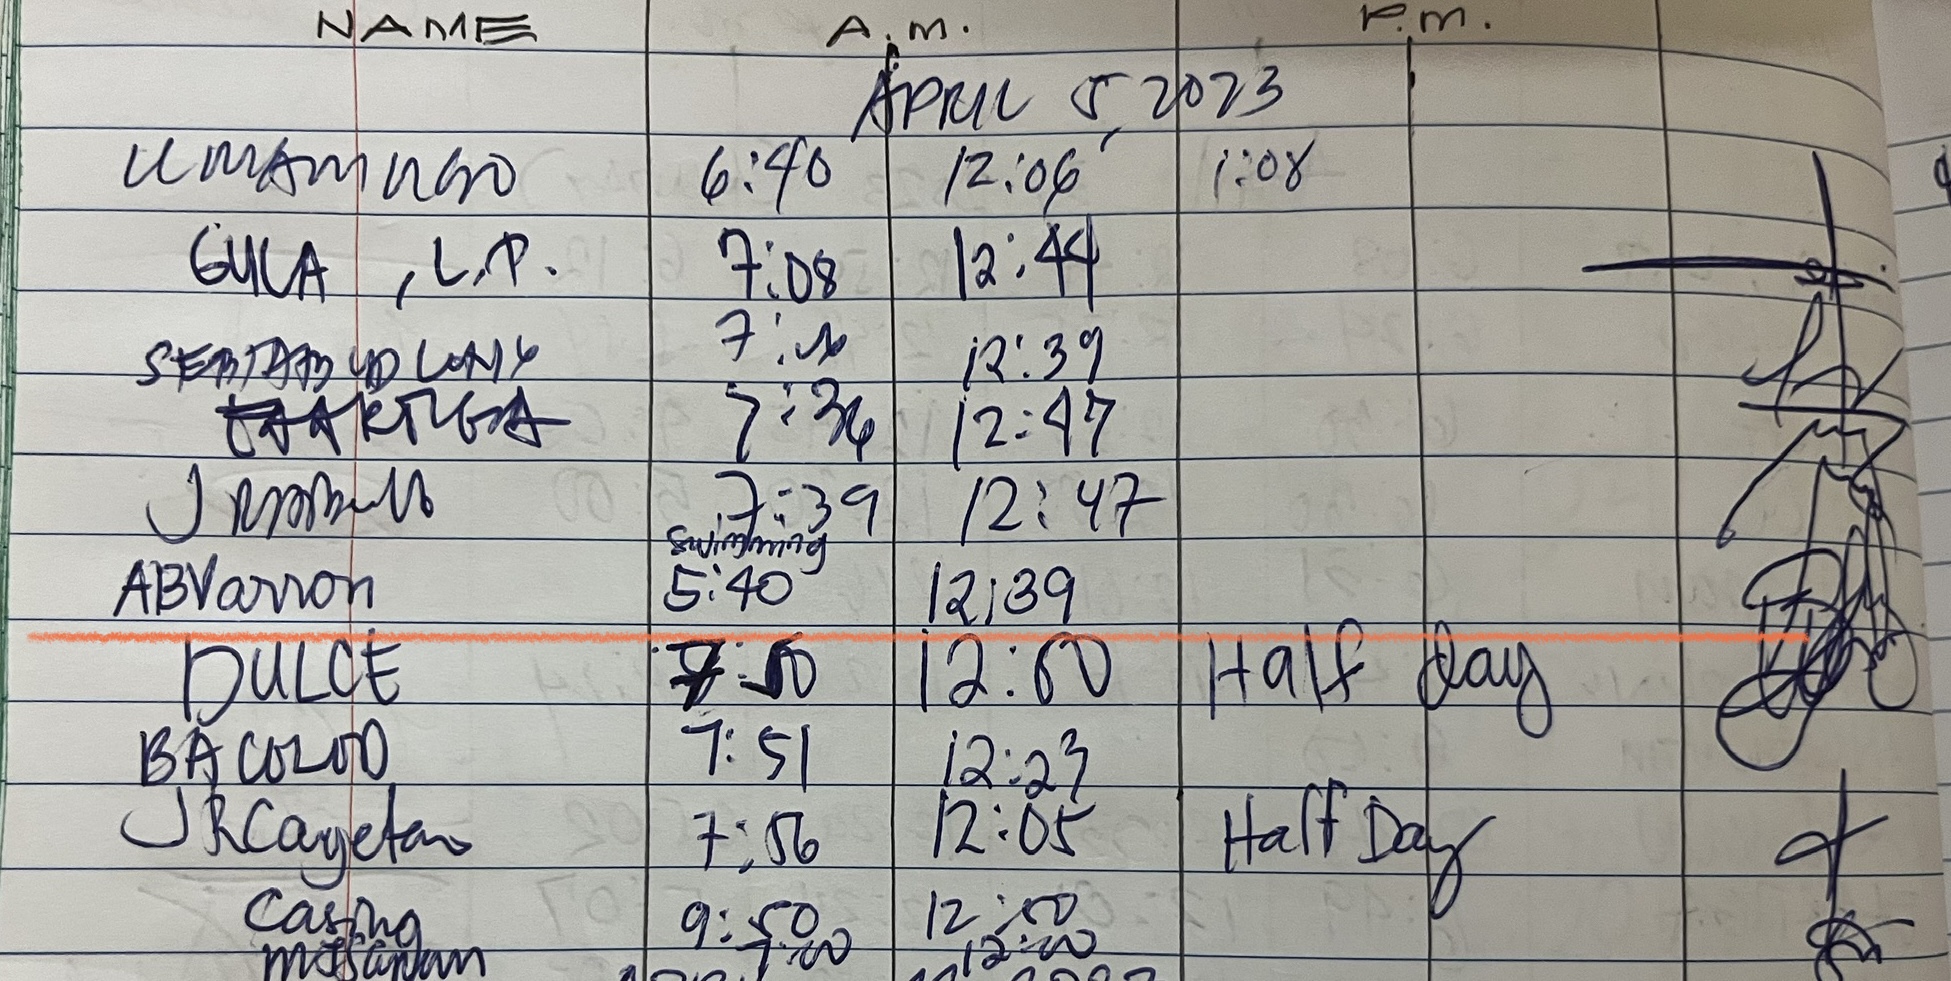 NAME A.M. P.M.
APRIL 5, 2023
UMAMUGO 6:40 12:06 1:08
GULA, L.P. 7:08 12:44
7: 12:39
ARTUGA 7:36 12:47
7:39 12:47
swimming
ABVarron 5:40 12:39
DULCE 7:50 12:50 Half day
BACOLOD 7:51 12:23
JRCayetano 7:56 12:05 Half Day
Casing 9:50 12:50
7:00 12:00